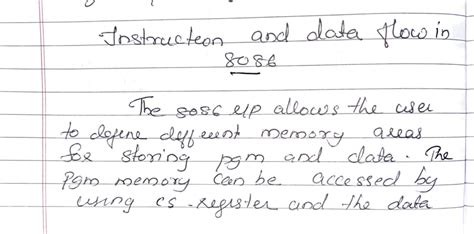 Instruction and data flow in
8086
The 8086 µp allows the user
to define different memory areas
for storing pgm and data. The
Pgm memory can be accessed by
using cs. register and the data